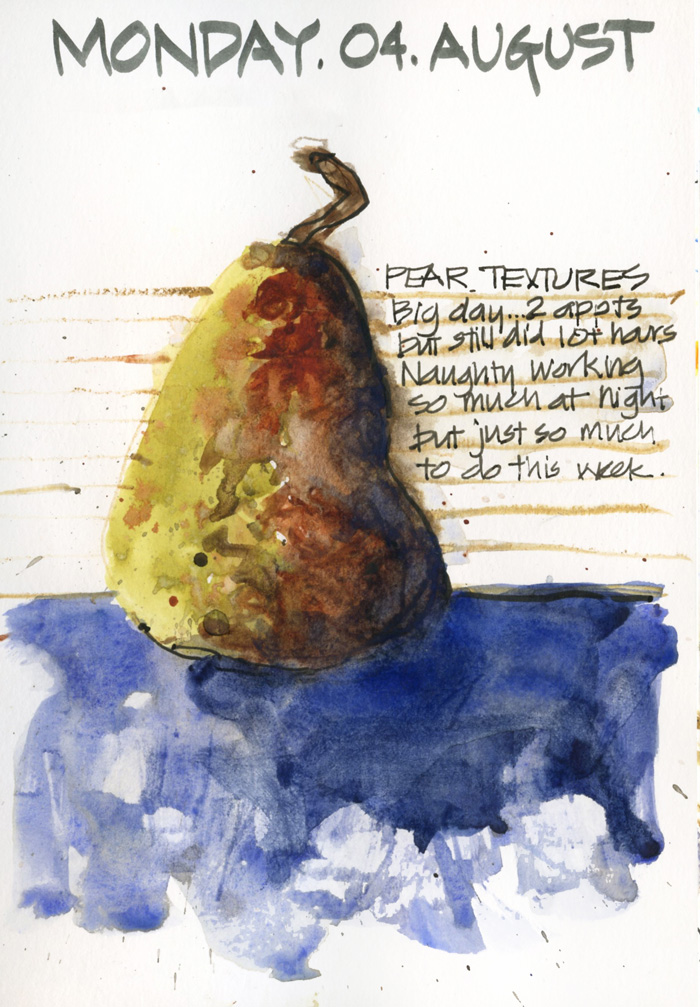 MONDAY. 04. AUGUST
PEAR TEXTURES
Big day...2 appts
but still did 10+ hours
Naughty working
so much at night
but just so much
to do this week.